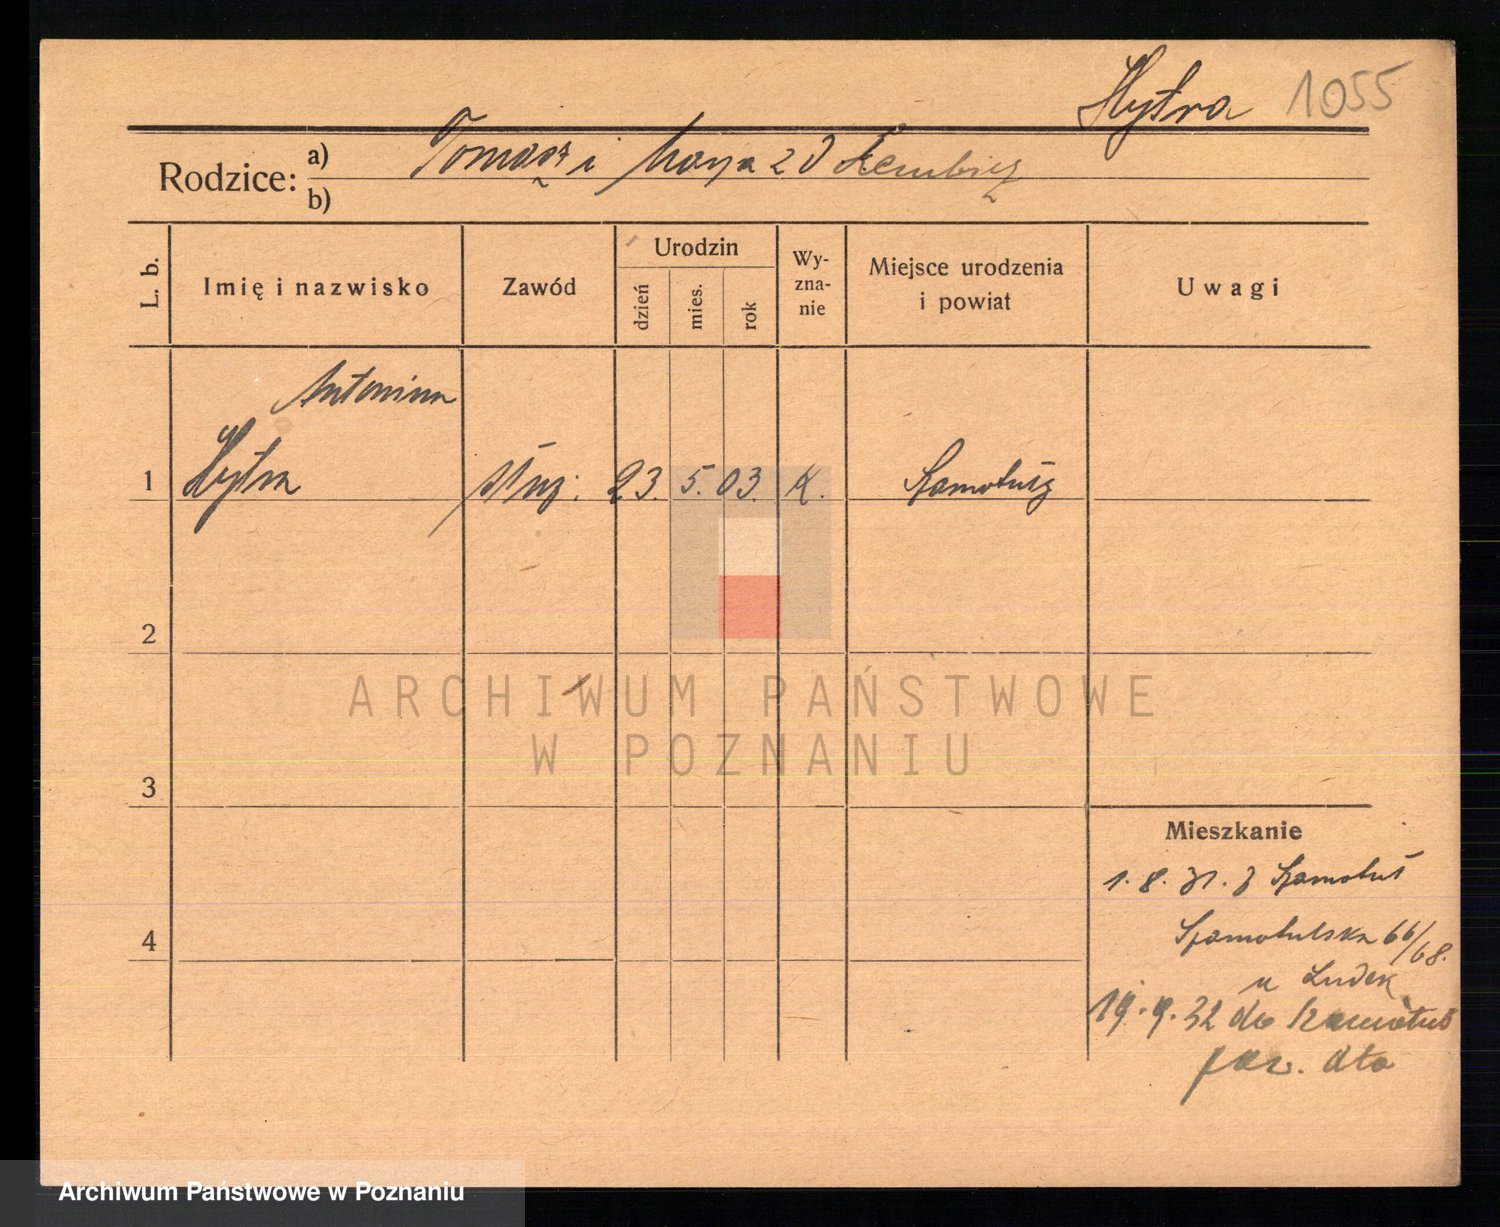 Hytra 1055
Rodzice: a) Tomasz i Marja z D
b)
L. b.
Imię i nazwisko
Zawód
Urodzin
dzień
mies.
rok
Wy-
zna-
nie
Miejsce urodzenia
i powiat
Uwagi
Antonina
1 Hytra służ. 23. 5. 03. k. Szamotuły
2
ARCHIWUM PAŃSTWOWE
W POZNANIU
3
Mieszkanie
1. 8. 31. z Szamotuł
4 Szamotulska 66/68.
u Ludek
19. 9. 32 do Szamotuł
pow. dto
Archiwum Państwowe w Poznaniu